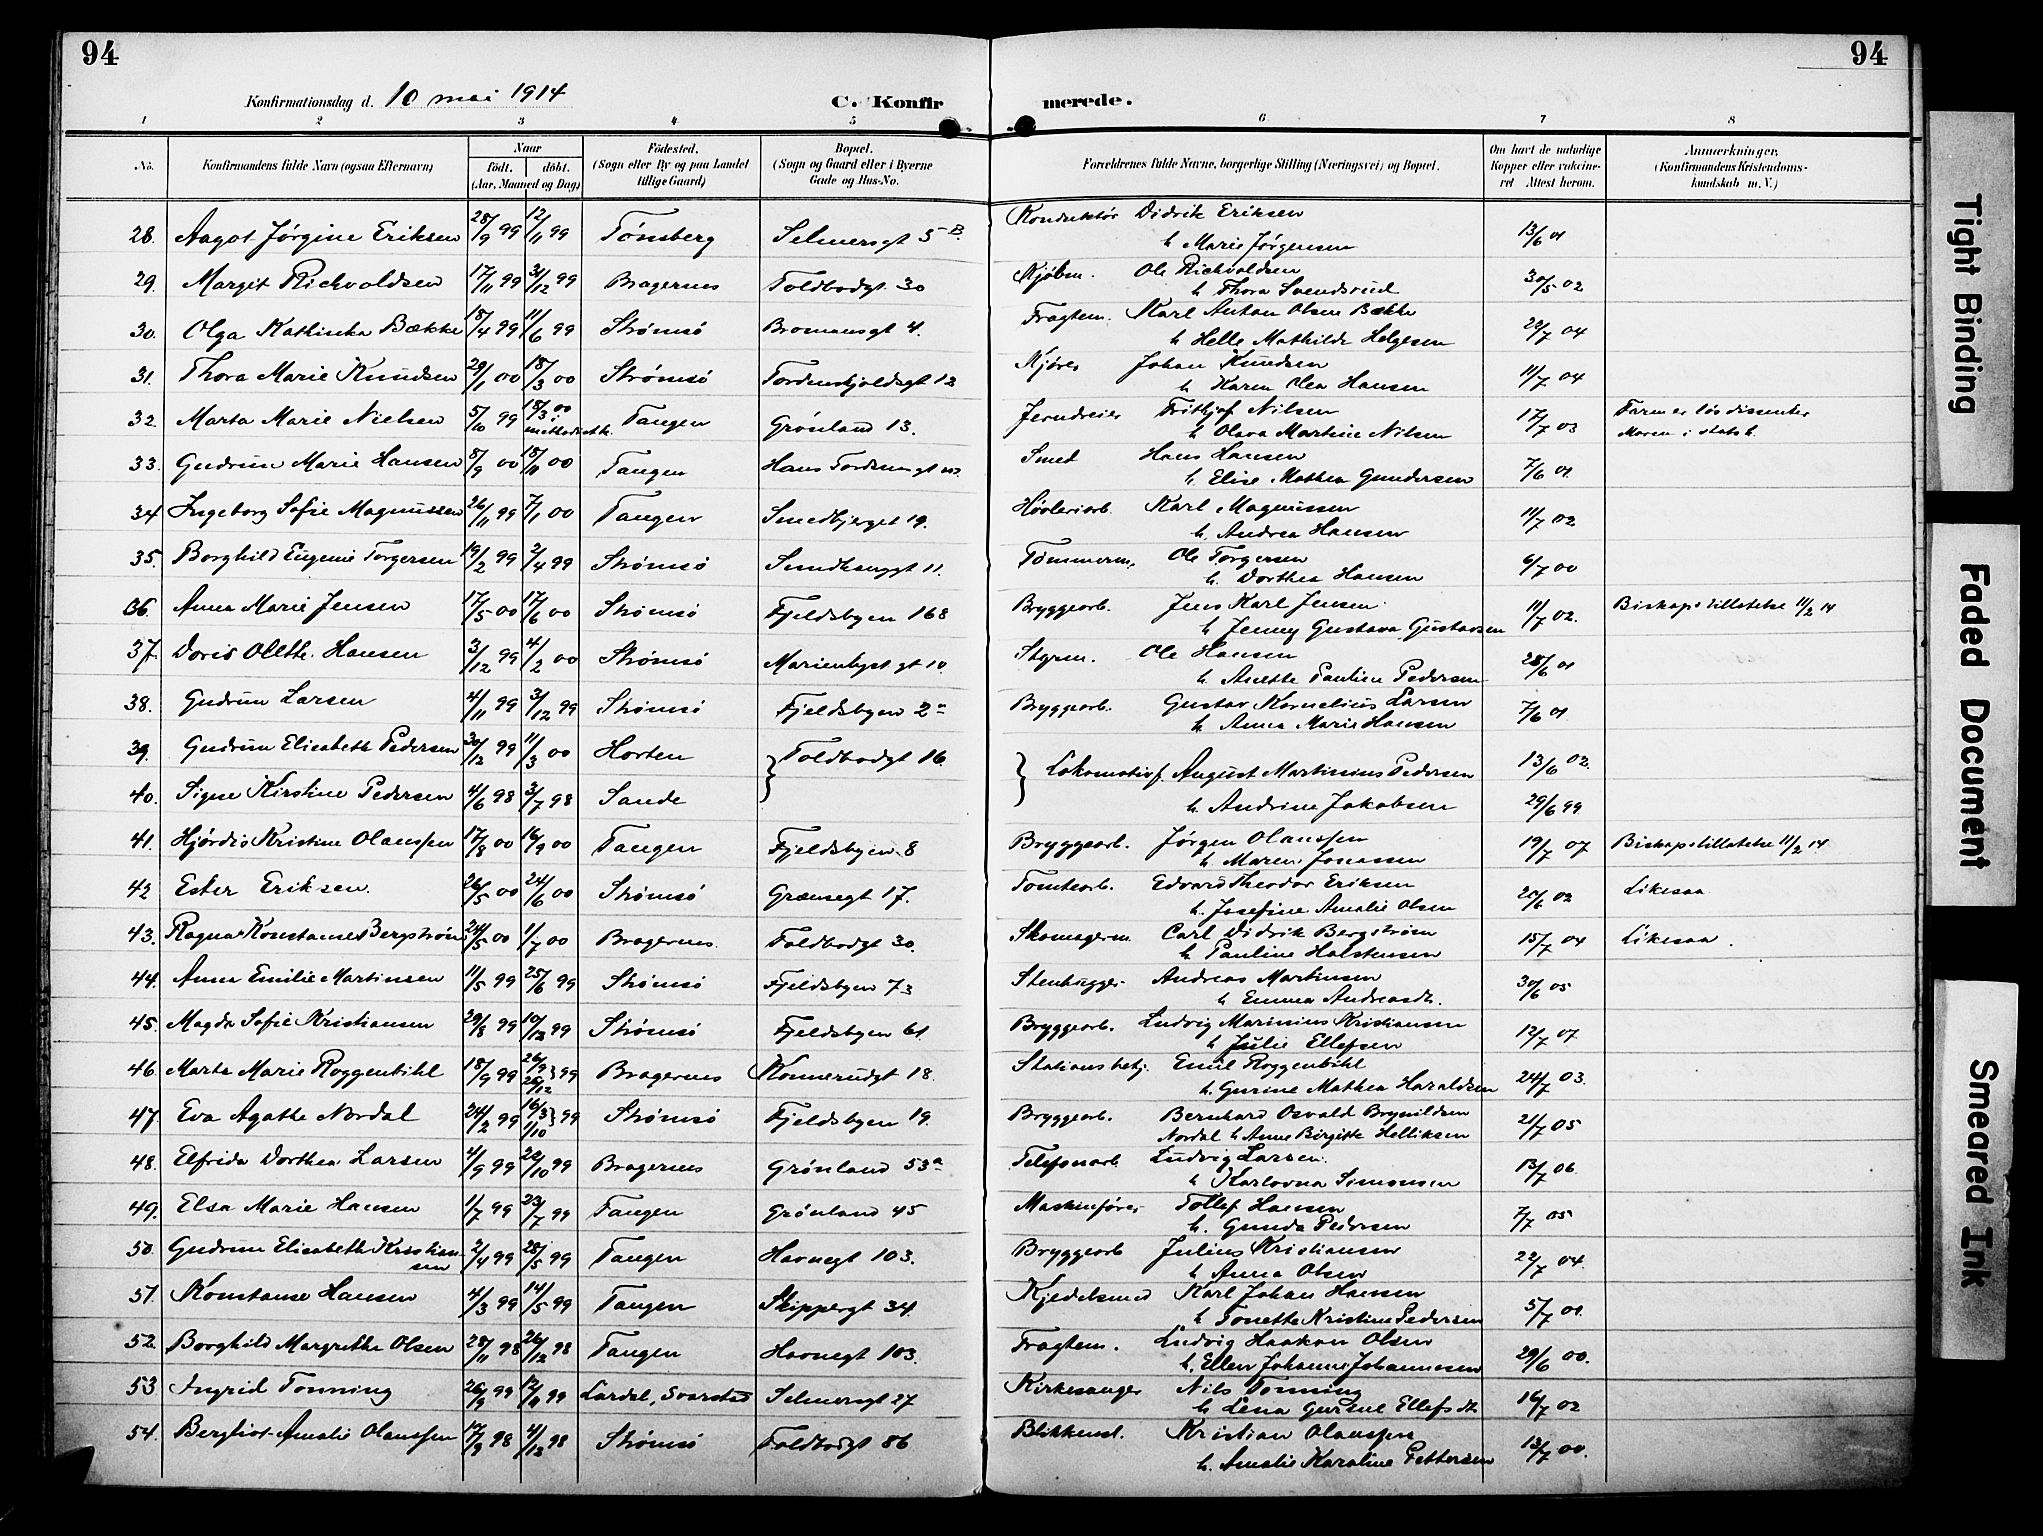 94
94
Konfirmationsdag d. 10 mai 1914
C. Konfirmerede.
1 2 3 4 5 6 7 8
No. Konfirmandens fulde Navn (ogsaa Efternavn) Naar født. døbt. (Aar, Maaned og Dag) Fødested. (Sogn eller By og paa Landet tillige Gaard) Bopæl. (Sogn og Gaard eller i Byerne Gade og Hus-No. Forældrenes fulde Navne, borgerlige Stilling (Næringsvei) og Bopæl. Om havt de naturlige Kopper eller vaccineret Attest herom. Anmerkninger, (Konfirmandens Kristendomskundskab m. V.)
28. Aagot Jørgine Eriksen 28/9 99 12/11 99 Tønsberg Selmersgt 5 B. Konduktør Didrik Eriksen
h Marie Jørgensen 13/6 01
29. Margit Rickvoldsen 17/11 99 31/12 99 Bragernes Toldbodgt. 30 Kjøbm. Ole Rickvoldsen
h Thora Svendsrud 30/5 02
30. Olga Kathinka Bække 18/4 99 11/6 99 Strømsø Bromansgt 4. Fragtem. Karl Anton Olsen Bække
h Helle Mathilde Helgesen 22/7 04
31. Thora Marie Knudsen 29/1 00 18/3 00 Strømsø Tordenskjoldsgt 12 Kjører Johan Knudsen
h Karen Olea Hansen 11/7 04
32. Marta Marie Nielsen 5/10 99 18/3 00 i metodistk. Tangen Grønland 13. Jerndreier Frithjof Nilsen
h Olava Martine Nilsen 17/7 03 Faren er løs dissenter
Moren i statsk.
33. Gudrun Marie Hansen 8/9 00 18/11 00 Tangen Smed Hans Hansen
h. Elise Mathea Gundersen 7/6 01.
34 Ingeborg Sofie Magnussen 26/11 99 7/1 00 Tangen Smedbjerget 19. Høvleriarb. Karl Magnussen
h. Andrea Hansen 11/7 02
35. Borghild Eugenie Torgersen 19/2 99 2/4 99 Strømsø 11. Tømmerm. Ole Torgersen
h. Dorthea Hansen 6/7 00
36. Anna Marie Jensen 17/5 00 17/6 00 Strømsø Fjeldsbyen 168 Bryggearb. Jens Karl Jensen
h Jenny Gustava Gustavsen 11/7 02. Biskopstillatelse 11/2 14
37. Doris Olette Hansen 3/12 99 4/2 00 Strømsø Marienlystgt 10. Styrm. Ole Hansen
h. Anette Pauline Pedersen 28/6 01
38. Gudrun Larsen 4/11 99 3/12 99 Strømsø Fjeldsbyen 2 a Bryggearb. Gustav Kornelius Larsen
h. Anna Marie Hansen 7/6 01
39. Gudrun Elisabeth Pedersen 30/12 99 11/3 00 Horten Toldbodgt 16. Lokomotivf. August Martinius Pedersen 13/6 02.
40. Signe Kirstine Pedersen 4/6 98 3/7 98 Sande h. Andrine Jakobsen 29/6 99
41. Hjørdis Kristine Olaussen 17/8 00 16/9 00 Tangen Fjeldsbyen 8 Bryggearb. Jørgen Olaussen
h Maren Jonassen 19/7 07 Biskopstillatelse 11/2 14.
42 Ester Eriksen. 26/5 00 24/6 00 Strømsø Grænsegt 17. Tomtearb. Edvard Theodor Eriksen
h. Josefine Amalie Olsen 20/6 02 Likesaa
43. Ragna Konstanse Bergstrøm 24/5 00 1/7 00 Bragernes. Toldbodgt 30. Skomagerm. Carl Didrik Bergstrøm
h Pauline Halstensen 15/7 04 Likesaa.
44. Anna Emilie Martinsen 11/5 99 25/6 99 Strømsø Fjeldsbyen 73 Stenhugger Andreas Martinsen
h Emma Andreasdt. 30/6 05
45. Magda Sofie Kristiansen 29/8 99 10/12 99 Strømsø Fjeldsbyen 61. Bryggearb. Ludvig Marinius Kristiansen
h Julie Ellefsen 12/7 07
46. Marta Marie Roggenbihl 18/9 99 26/9 26/12 99 Bragernes Konnerudgt 18. Stationsbetj. Emil Roggenbihl
h. Gurine Mathea Haraldsen 24/7 03.
47. Eva Agathe Nordal 24/2 99 16/3 1/10 99 Strømsø Fjeldsbyen 19. Bryggearb. Bernhard Osvald Brynildsen
Nordal h Anne Birgitte Helliksen 21/7 05
48. Elfrida Dorthea Larsen 4/9 99 22/10 99 Bragernes Grønland 53 a Telefonarb Ludvig Larsen.
h Karlovna Simonsen 13/7 06.
49. Elsa Marie Hansen 1/7 99 23/7 99 Tangen Grønland 45 Maskinfører Tollef Hansen
h. Gunda Pedersen 7/7 05
50. Gudrun Elisabeth Kristiansen 2/4 99 28/5 99 Tangen Havnegt 103. Bryggearb Julius Kristiansen
h Anna Olsen 22/7 04.
51. Konstanse Hansen 4/3 99 14/5 99 Tangen Skippergt 34. Kjedelsmed Karl Johan Hansen
h Tonette Kristine Pedersen 5/7 01.
52. Borghild Margrethe Olsen 28/11 98 26/12 98 Tangen Havnegt 103. Fragtem. Ludvig Haakon Olsen
h. Ellen Johanne Johannesen 29/6 00.
53. Ingrid Tonning 26/9 99 12/11 99 Lardal, Svarstad Selmersgt 27 Kirkesanger Nils Tonning
h Lena Gurine Ellefsdt. 16/7 02
54. Bergliot Amalie Olaussen 17/9 98 4/12 98 Strømsø Toldbodgt 86 Blikkensl. Kristian Olaussen
h. Amalie Karoline Pettersen 13/7 00.
Tight Binding
Faded Document
Smeared Ink